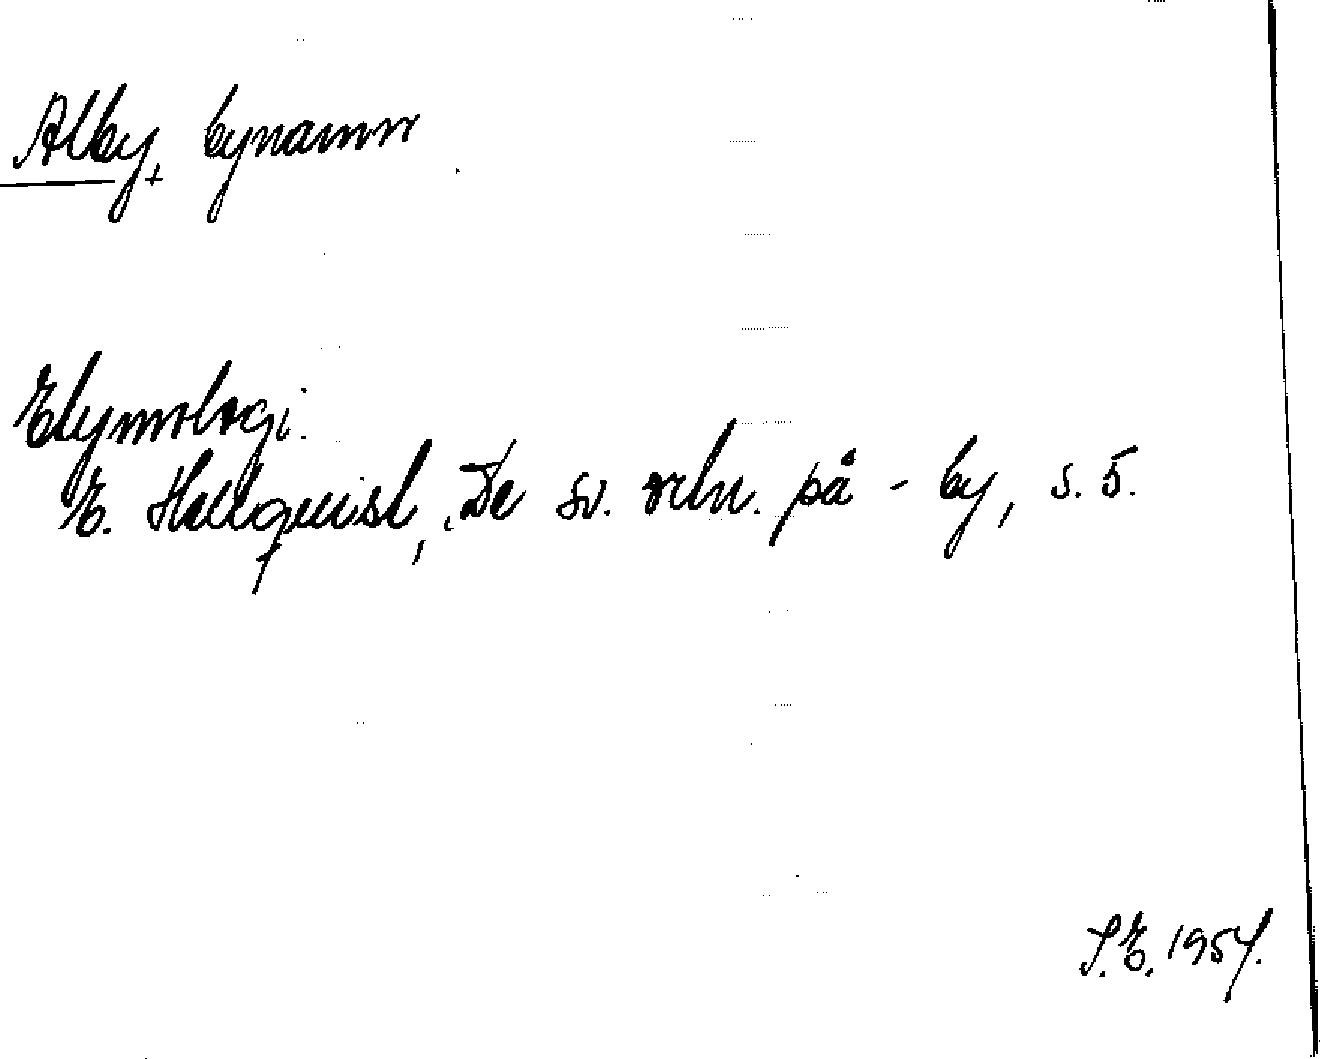 Alby, bynamn
Etymologi.
E. Hellquist, De sv. ortn. på -by, s. 5.
S.E. 1954.